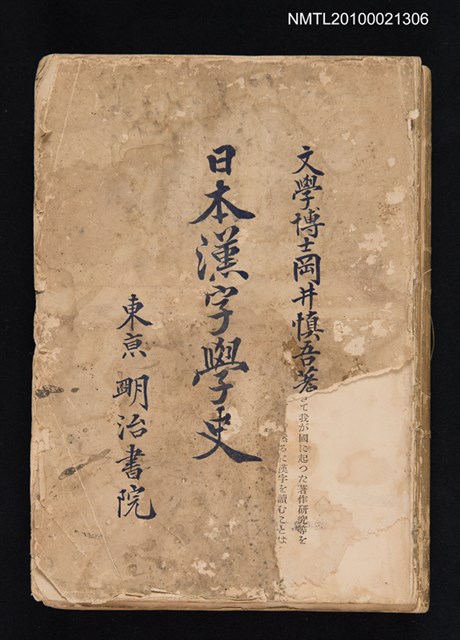 NMTL20100021306
文學博士岡井慎吾著
日本漢字學史
東京 明治書院
て我が國に起つた著作研究等を
るに漢字を讀むことは